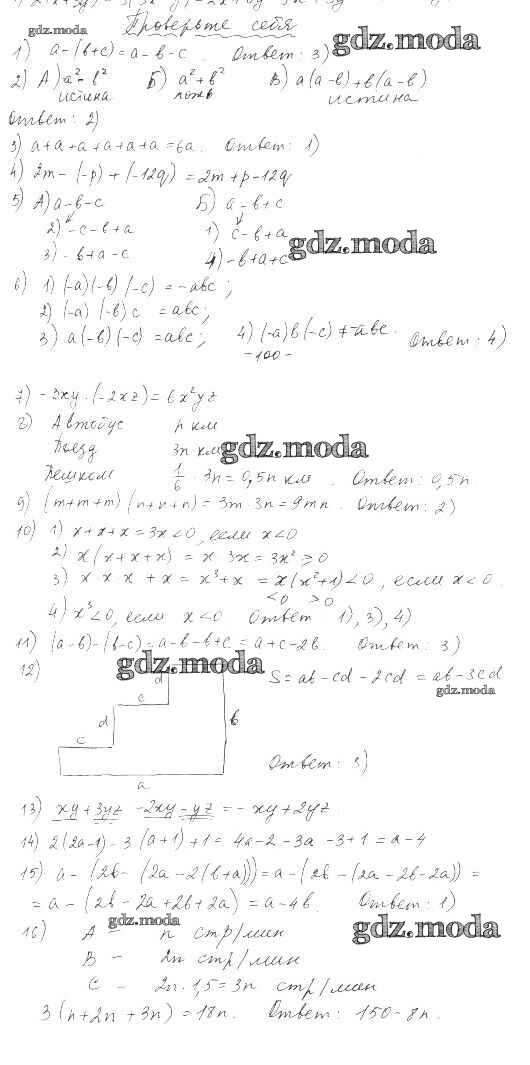 Проверьте себя
gdz.moda
1) a-(b+c)=a-b-c. Ответ: 3)
gdz.moda
2) А) a²-b² Б) a²+b² В) a(a-b)+b(a-b)
истина ложь истина
Ответ: 2)
3) a+a+a+a+a+a=6a. Ответ: 1)
4) 2m-(-p)+(-12q)=2m+p-12q
5) А) a-b-c Б) a-b+c
2) -c-b+a 1) c-b+a
gdz.moda
3) -b+a-c 4) -b+a+c
6) 1) (-a)(-b)(-c)=-abc;
2) (-a)(-b)c=abc;
3) a(-b)(-c)=abc; 4) (-a)b(-c)≠-abc. Ответ: 4)
-100-
7) -3xy·(-2xz)=6x²yz
8) Автобус n км
Поезд 3n км
gdz.moda
Пешком 1/6·3n=0,5n км. Ответ: 0,5n.
9) (m+m+m)(n+n+n)=3m·3n=9mn. Ответ: 2)
10) 1) x+x+x=3x<0, если x<0
2) x(x+x+x)=x·3x=3x²≥0
3) x x x+x=x³+x=x(x²+1)<0, если x<0.
<0 >0
4) x³<0, если x<0 Ответ: 1), 3), 4)
11) (a-b)-(b-c)=a-b-b+c=a+c-2b. Ответ: 3)
gdz.moda
12) S=ab-cd-2cd=ab-3cd
gdz.moda
d
c
d b
c
a
Ответ: 3)
13) xy+3yz-2xy-yz=-xy+2yz
14) 2(2a-1)-3(a+1)+1=4a-2-3a-3+1=a-4
15) a-(2b-(2a-2(b+a)))=a-(2b-(2a-2b-2a))=
=a-(2b-2a+2b+2a)=a-4b. Ответ: 1)
gdz.moda
gdz.moda
16) A - n стр/мин
B - 2n стр/мин
C - 2n·1,5=3n стр/мин
3(n+2n+3n)=18n. Ответ: 150-8n.
gdz.moda